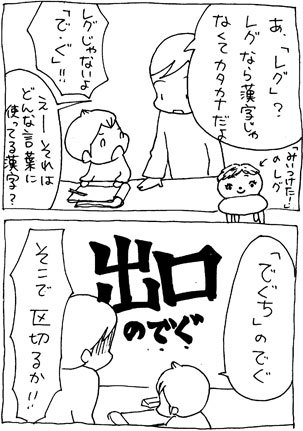 あ、「レグ」？
レグなら漢字じゃ
なくてカタカナだよ
レグじゃないよ
「でぐ」!!
えーそれは
どんな言葉に
使ってる漢字？
「みいつけた！」
のレグ
「でぐち」のでぐ
出口
のでぐ
そこで区切るか!!